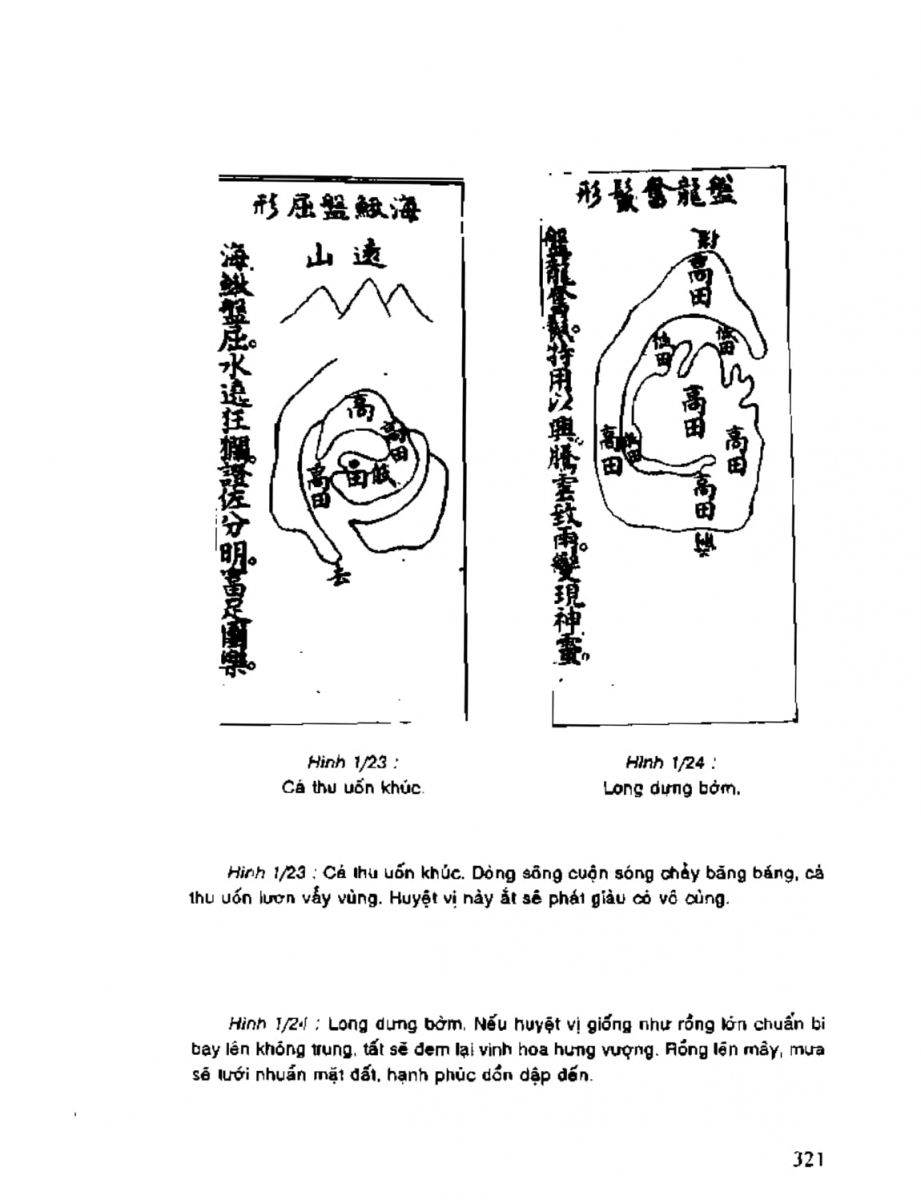 形屈盤鰍海
山遠
海鰍盤屈。水遶狂獺。證佐分明。富足團樂。
高
高田
高田
田
去
形鬚奮龍盤
盤龍奮鬚。持用以興。騰雲致雨。變現神靈。
高田
低田
低田
高田
高田
低田
高田
高田
Hình 1/23 :
Cá thu uốn khúc.
Hình 1/24 :
Long dựng bờm.
Hình 1/23 : Cá thu uốn khúc. Dòng sông cuộn sóng chảy băng băng, cá
thu uốn lươn vẫy vùng. Huyệt vị này ắt sẽ phát giàu có vô cùng.
Hình 1/24 : Long dưng bờm. Nếu huyệt vị giống như rồng lớn chuẩn bi
bay lên không trung, tất sẽ đem lại vinh hoa hưng vượng. Rồng lên mây, mưa
sẽ tưới nhuần mặt đất, hạnh phúc dồn dập đến.
321